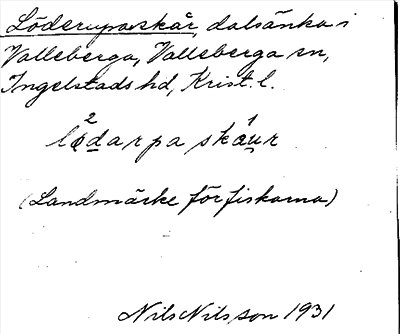 Löderupaskår, dalsänka i
Valleberga, Valleberga sn,
Ingelstads hd, Krist. l.
2 1
lödarpa skáur
(Landmärke för fiskarna)
Nils Nilsson 1931